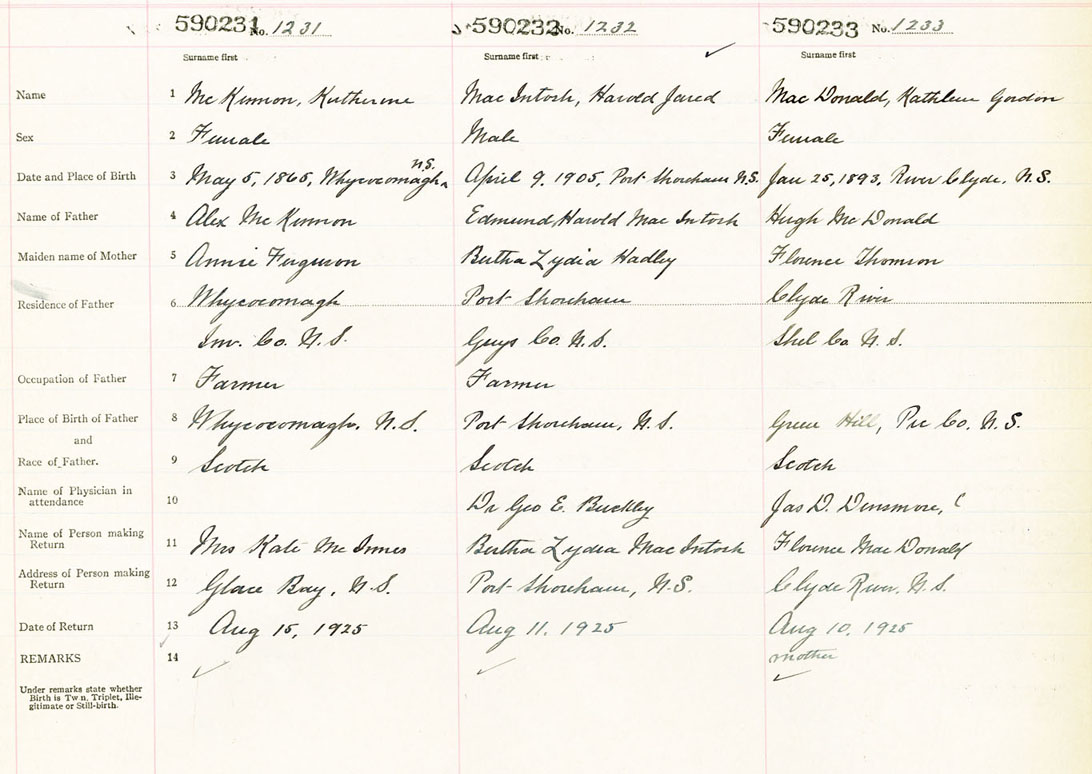 590231 No. 1231 590232 No. 1232 590233 No. 1233
Surname first Surname first Surname first
Name 1 McKinnon, Katherine MacIntosh, Harold Jared MacDonald, Kathleen Gordon
Sex 2 Female Male Female
N.S.
Date and Place of Birth 3 May 5, 1865, Whycocomagh April 9. 1905, Port Shoreham N.S. Jan 25, 1893, River Clyde, N.S.
Name of Father 4 Alex McKinnon Edmund Harold MacIntosh Hugh McDonald
Maiden name of Mother 5 Annie Ferguson Bertha Lydia Hadley Florence Thomson
Residence of Father 6 Whycocomagh Port Shoreham Clyde River
Inv. Co. N.S. Guys Co. N.S. Shel Co N.S.
Occupation of Father 7 Farmer Farmer
Place of Birth of Father 8 Whycocomagh. N.S. Port Shoreham, N.S. Green Hill, Pic Co. N.S.
and
Race of Father. 9 Scotch Scotch Scotch
Name of Physician in
attendance 10 Dr Geo E. Buckley Jas D. Densmore,
Name of Person making
Return 11 Mrs Kate McInnes Bertha Lydia MacIntosh Florence MacDonald
Address of Person making
Return 12 Glace Bay, N.S. Port Shoreham, N.S. Clyde River. N.S.
Date of Return 13 Aug 15, 1925 Aug 11. 1925 Aug 10, 1925
REMARKS 14 mother
Under remarks state whether
Birth is Twin, Triplet, Ille-
gitimate or Still-birth.